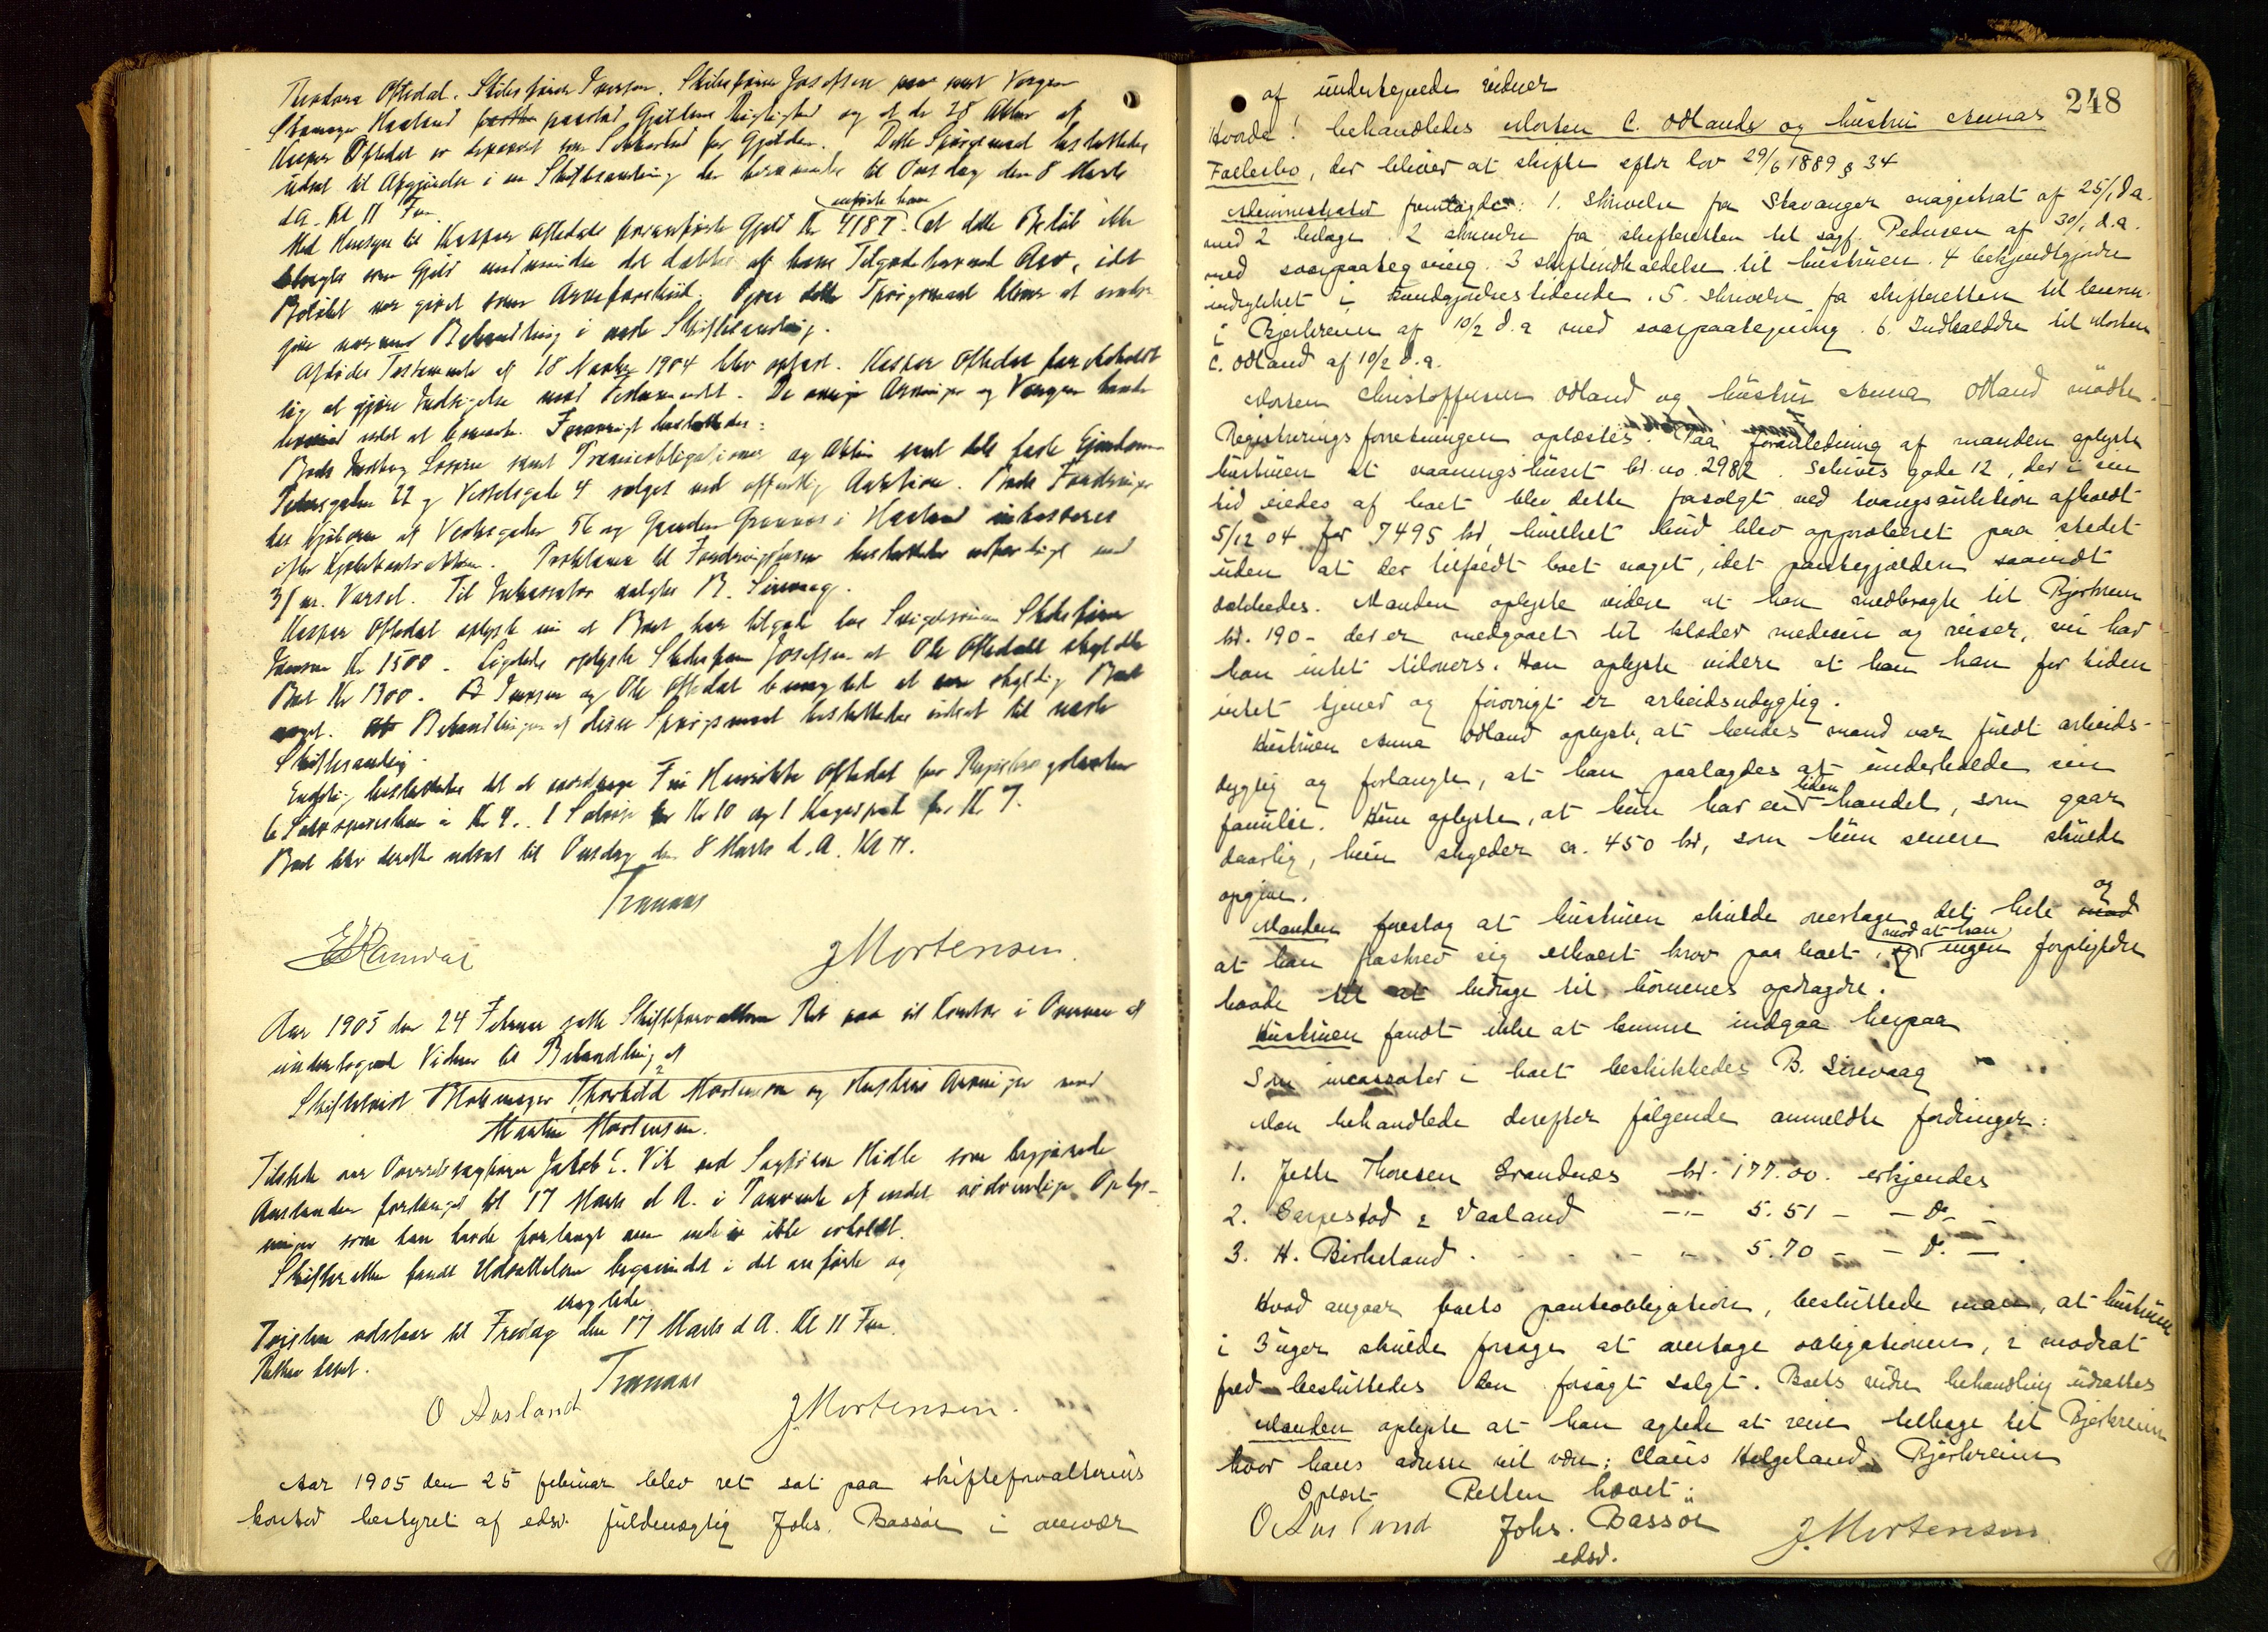 Theodora Oftedal. Skibsfører Iversen. Skibsfører Josefsen samt Vergen
Skomager Haaland paastod Gjældens Rigtighed og at de 28 Aktier af
Kasper Oftedal er deponeret som Sikkerhed for Gjælden. Dette Spørgsmaal besluttedes
udsat til Afgjørelse i en Skiftesamling der berammedes til Onsdag den 8 Marts
d.A. Kl 11 Fm.
Med Hensyn til Kasper Oftedals foranførte Gjæld Kr 4187 anførte han at dette Beløb ikke
som Gjæld medmindre det dækkes af hans Tilgodehavende Arv, idet
Beløbet var givet som Arveforskud. Ogsaa dette Spørgsmaal bliver at
gjøre nærmere Behandling i næste Skiftesamling.
Afdødes Testamente af 18 Novbr 1904 blev oplæst. Kasper Oftedal forbeholdt
sig at gjøre Indsigelse mod Testamentet. De øvrige Arvinger og Vergen havde
intet at bemærke. Forøvrigt besluttedes:
Boets Indbo og Løsøre samt Præmieobligationer og Aktier samt dets faste Eiendomme
Pedersgaden 22 og Vesselsgade 4 sælges ved offentlig Auktion. Boets Fordringer
hos Kjøberen af Verksgaden 56 og Gaarden Grannes i Haaland inkasseres
efter Kjøbekontrakten. Proklama til Fordringshavere besluttedes udfærdiget med
3 m. Varsel. Til Inkassator valgtes B. Sirevaag.
Kasper Oftedal oplyste nu at Boet har tilgode hos Svigersønnen Skibsfører
Iversen Kr 1500. Ligeledes oplyste Skibsfører Josefsen at Ole Oftedal skyldte
Boet Kr 1300. B Iversen og Ole Oftedal benegtede at være skyldig Boet
noget. Behandlingen af disse Spørgsmaal besluttedes udsat til næste
Skiftesamling.
Endelig besluttedes det at overdrage Frk Henrikke Oftedal for Registreringstaksten
6 Sølvspiseskeer à Kr 4. 1 Sølvøse for Kr 10 og 1 Kagespade for Kr 7.
Boet blev derefter udsat til Onsdag den 8 Marts d.A. Kl 11.
Tranaas
E Ramdal J Mortensen.
Aar 1905 den 24 Februar satte Skifteforvalteren Ret paa sit Kontor i Overvær af
undertegnede Vidner til Behandling af
Skiftetvist Blokmager Thorkild Mortensen og Hustrus Arvinger mod
Martin Mortensen.
Tilstede var Overretssagfører Jakob C. Vik ved Sagfører Hidle som begjærede
Anstanden forlænget til 17 Marts d A. i Paavente af endel nødvendige Oplys-
ninger som han havde forlangt men endnu ikke erholdt.
Skifteretten fandt Udsættelsen begrundet i det anførte og
eragtede
Tvisten udstaar til Fredag den 17 Marts d A. Kl 11 Fm.
Retten hævet.
Tranaas
O Aasland J. Mortensen.
Aar 1905 den 25 februar blev ret sat paa skifteforvalterens
kontor bestyret af edsv. fuldmægtig Johs. Bassøe i overvær
248
af undertegnede vidner
Hvorda! behandledes Morten C. Odlands og hustru Annas
Fællesbo, der bliver at skifte efter lov 29/6 1889 § 34
Administrator fremlagde: 1. Skrivelse fra Stavanger magistrat af 25/1 d.a.
med 2 bilage. 2 skrivelse fra skifteretten til sagf. Pedersen af 30/1 d.a.
med svarpaategning. 3 skifteindkaldelse til hustruen. 4 bekjendtgjørelse
indrykket i kundgjørelsestidende. 5. skrivelse fra skifteretten til lensm.
i Bjerkreim af 10/2 d.a med svarpaategning. 6. Indkaldelse til Morten
C. Odland af 10/2 d.a.
Morten Christoffersen Odland og hustru Anna Odland mødte.
Registreringsforretningen oplæstes. Paa foranledning af manden oplyste
hustruen at vaaningshuset br. no. 2982. Schives gade 12, der i sin
tid eiedes af boet blev dette forsolgt ved tvangsauktion afholdt
5/12 04 for 7495 kr, hvilket bud blev approberet paa stedet
uden at der tilfaldt boet noget, idet pantegjælden saavidt
dækkedes. Manden oplyste videre at han medbragte til Bjerkreim
kr. 190 – der er medgaaet til klæder medicin og reiser, nu har
han intet tilovers. Han oplyste videre at han han for tiden
intet tjener og forøvrigt er arbeidsudygtig.
Hustruen Anna Odland oplyste, at hendes mand var fuldt arbeids-
dygtig og forlangte, at han paalagdes at underholde sin
familie. Hun oplyste, at hun har en liden handel, som gaar
daarlig, hun skylder ca. 450 kr, som hun senere skulde
opgive.
Manden foreslog at hustruen skulde overtage det hele mod og
at han fraskrev sig ethvert krav paa boet, og mod at han ingen forpligtelse
havde til at bidrage til børnenes opdragelse.
Hustruen fandt ikke at kunne indgaa herpaa
Som incassator i boet beskikkedes B. Sirevaag
Man behandlede derefter følgende anmeldte fordringer:
1. Jette Thoresen Grandnæs kr. 177.00. erkjendes
2. Sergestad & Vaaland -"- 5.51 - - do -
3. H. Birkeland . - - - - 5.70 - - do. -
Hvad angaar boets panteobligation, besluttede man, at hustruen
i 3 uger skulde forsøge at overtage obligationen, i modsat
fald besluttedes den forsøgt solgt. Boets videre behandling udsattes
Manden oplyste at han agtede at reise tilbage til Bjerkreim
hvor hans adresse vil være: Claus Helgeland, Bjerkreim
Oplæst Retten hævet:
O Aasland Johs. Bassøe J. Mortensen
edsv.